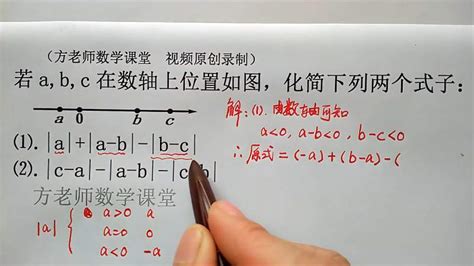 （方老师数学课堂 视频原创录制）
若a,b,c在数轴上位置如图，化简下列两个式子：
a 0 b c
(1). |a|+|a-b|-|b-c|
(2). |c-a|-|a-b|-|c b|
方老师数学课堂
|a| { a>0 a
a=0 0
a<0 -a
解：(1). 由数轴可知
a<0, a-b<0, b-c<0
∴原式=(-a)+(b-a)-(